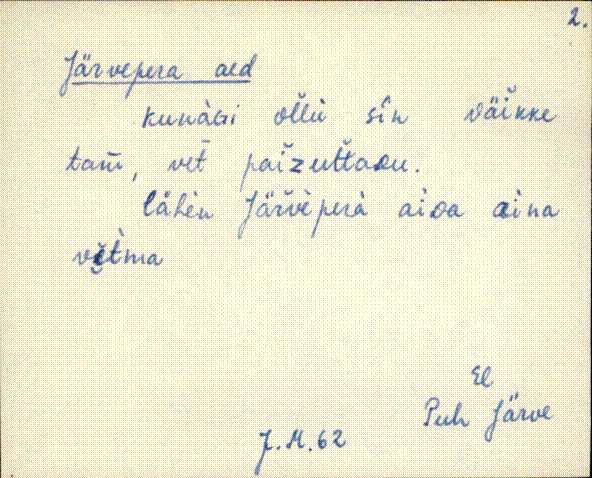 2.
Järvepera aed
kunàGi oľľù sîn väikke
tam̄, vet̄ païzuťťaDu.
lähèn Järvèperà aiDa aina
vèìtmä
El
Puh Järve
J. M. 62